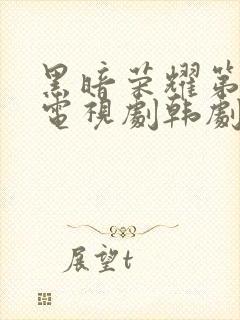 黑暗荣耀第
電視劇韩劇
展望t